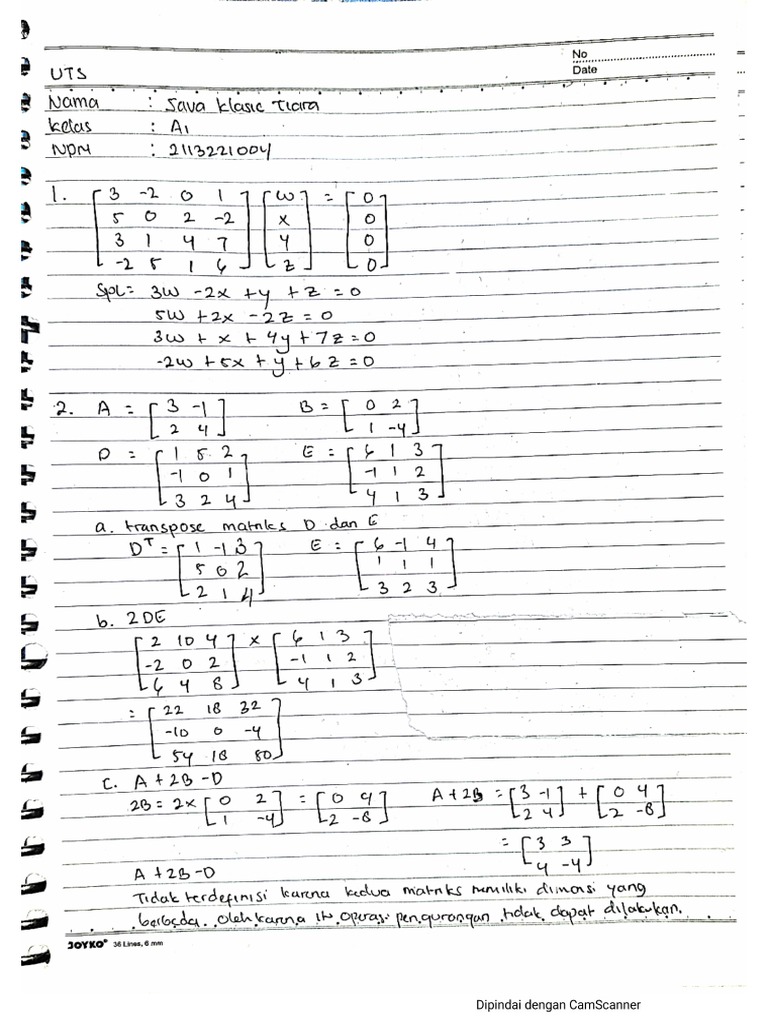 No
Date
UTS
Nama : Sava Klasic Tiara
Kelas : A1
NPM : 2113221004
1. [3 -2 0 1] [w] = [0]
[5 0 2 -2] [x] [0]
[3 1 4 7] [y] [0]
[-2 5 1 6] [z] [0]
Spl = 3w - 2x + y + z = 0
5w + 2x - 2z = 0
3w + x + 4y + 7z = 0
-2w + 5x + y + 6z = 0
2. A = [3 -1] B = [0 2]
[2 4] [1 -4]
D = [1 5 2] E = [6 1 3]
[-1 0 1] [-1 1 2]
[3 2 4] [4 1 3]
a. transpose matriks D dan E
Dᵀ = [1 -1 3] E = [6 -1 4]
[5 0 2] [1 1 1]
[2 1 4] [3 2 3]
b. 2DE
[2 10 4] x [6 1 3]
[-2 0 2] [-1 1 2]
[6 4 8] [4 1 3]
= [22 18 32]
[-10 0 -4]
[54 18 80]
c. A + 2B - D
2B = 2x [0 2] = [0 4] A + 2B = [3 -1] + [0 4]
[1 -4] [2 -8] [2 4] [2 -8]
= [3 3]
[4 -4]
A + 2B - D
Tidak terdefinisi karena kedua matriks memiliki dimensi yang
berbeda. Oleh karena itu operasi pengurangan tidak dapat dilakukan.
JOYKO® 36 Lines, 6 mm
Dipindai dengan CamScanner